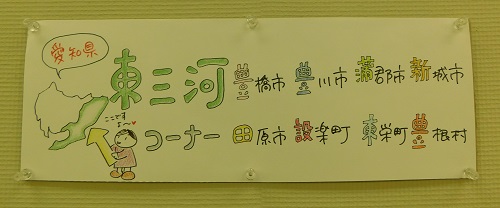 愛知県
東三河
豊橋市 豊川市 蒲郡市 新城市
ここですよ〜♥
コーナー
田原市 設楽町 東栄町 豊根村